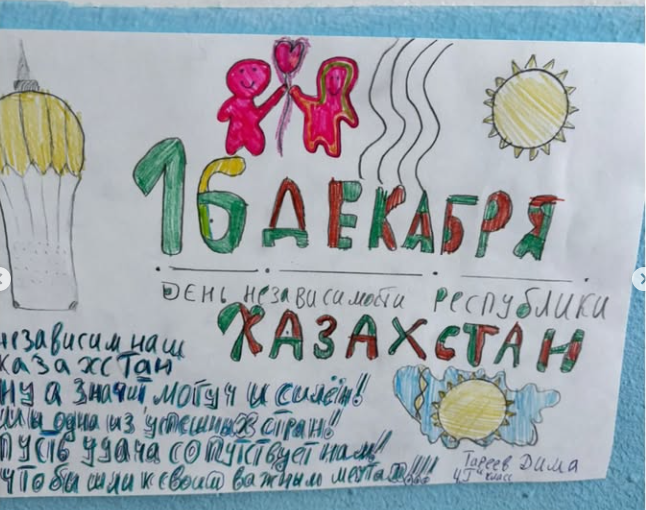 16 ДЕКАБРЯ
День независимости Республики
КАЗАХСТАН
Независим наш
казахстан
ну а значит могуч и силён!
мы одна из успешных стран!
Пусть удача сопутствует нам!
чтобы шли к своим важным мечтам!!!
Тареев Дима
4 "Г" класс